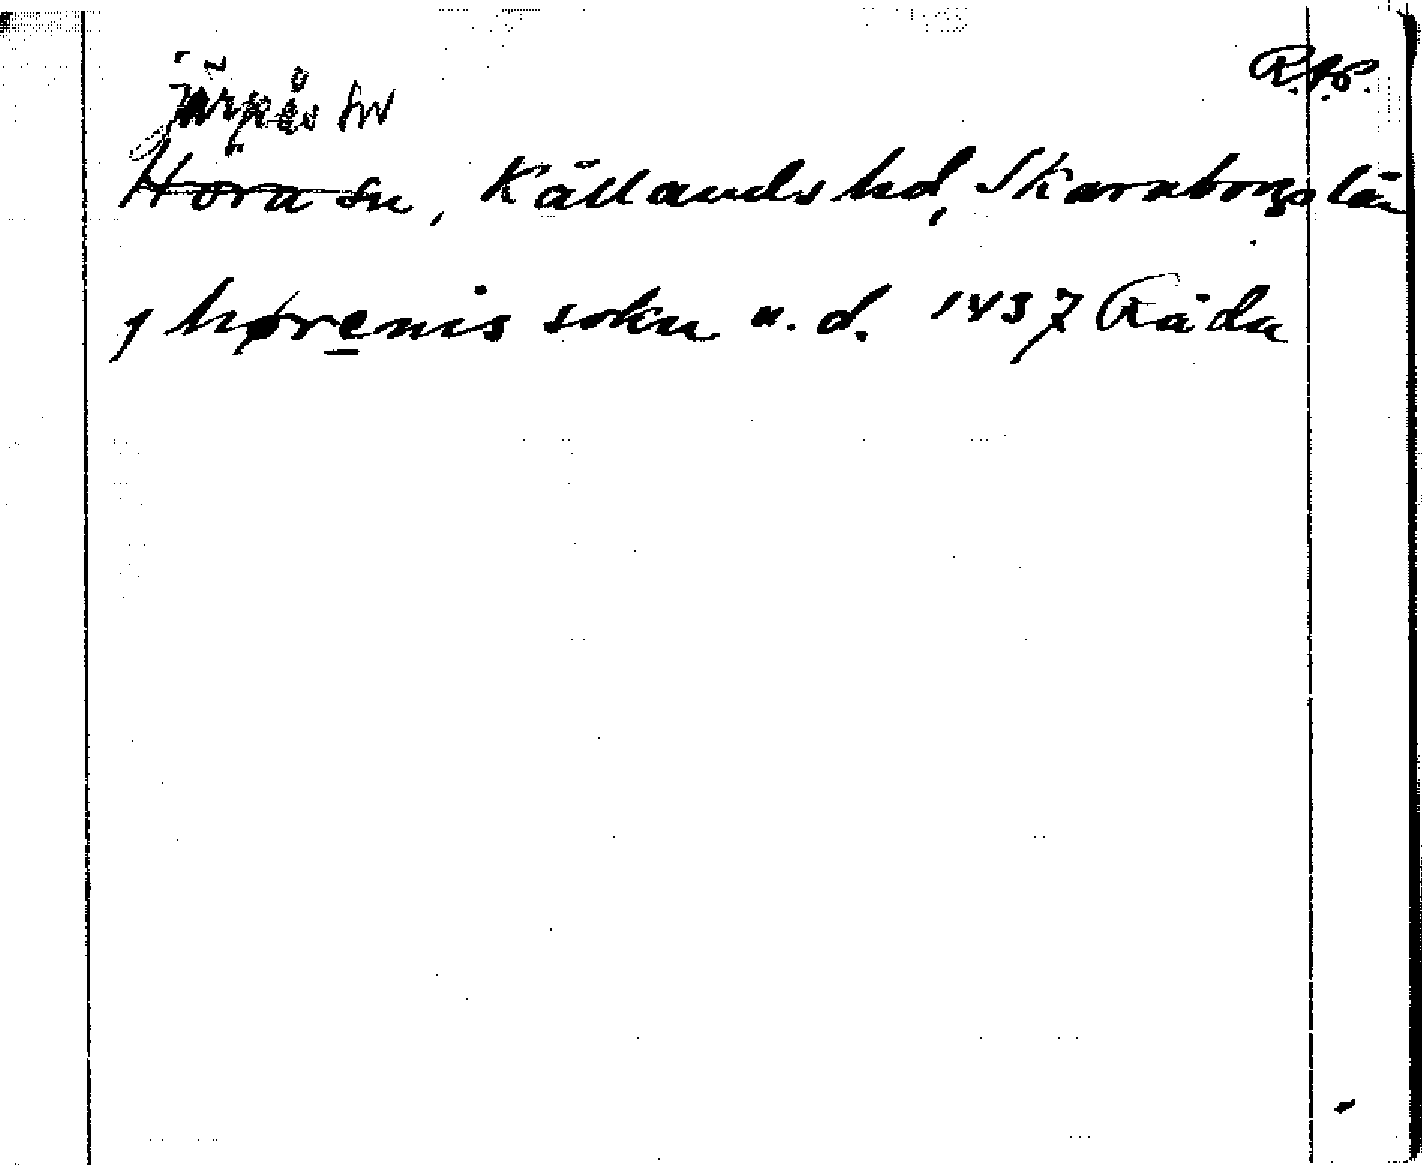 R.A.P.
Järpås sn
Höra sn, Kållands hd, Skaraborgs län
j hørenis sokn u.d. 1437 Råda